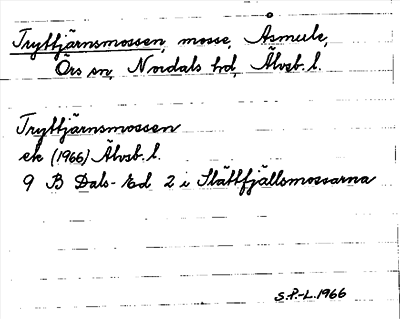 Tryttjärnsmossen, mosse, Åsmule,
Örs sn, Nordals hd, Älvsb. l.
Tryttjärnsmossen
ek (1966) Älvsb. l.
9 B Dals-Ed 2 i Slättfjällsmossarna
S.P.-L. 1966